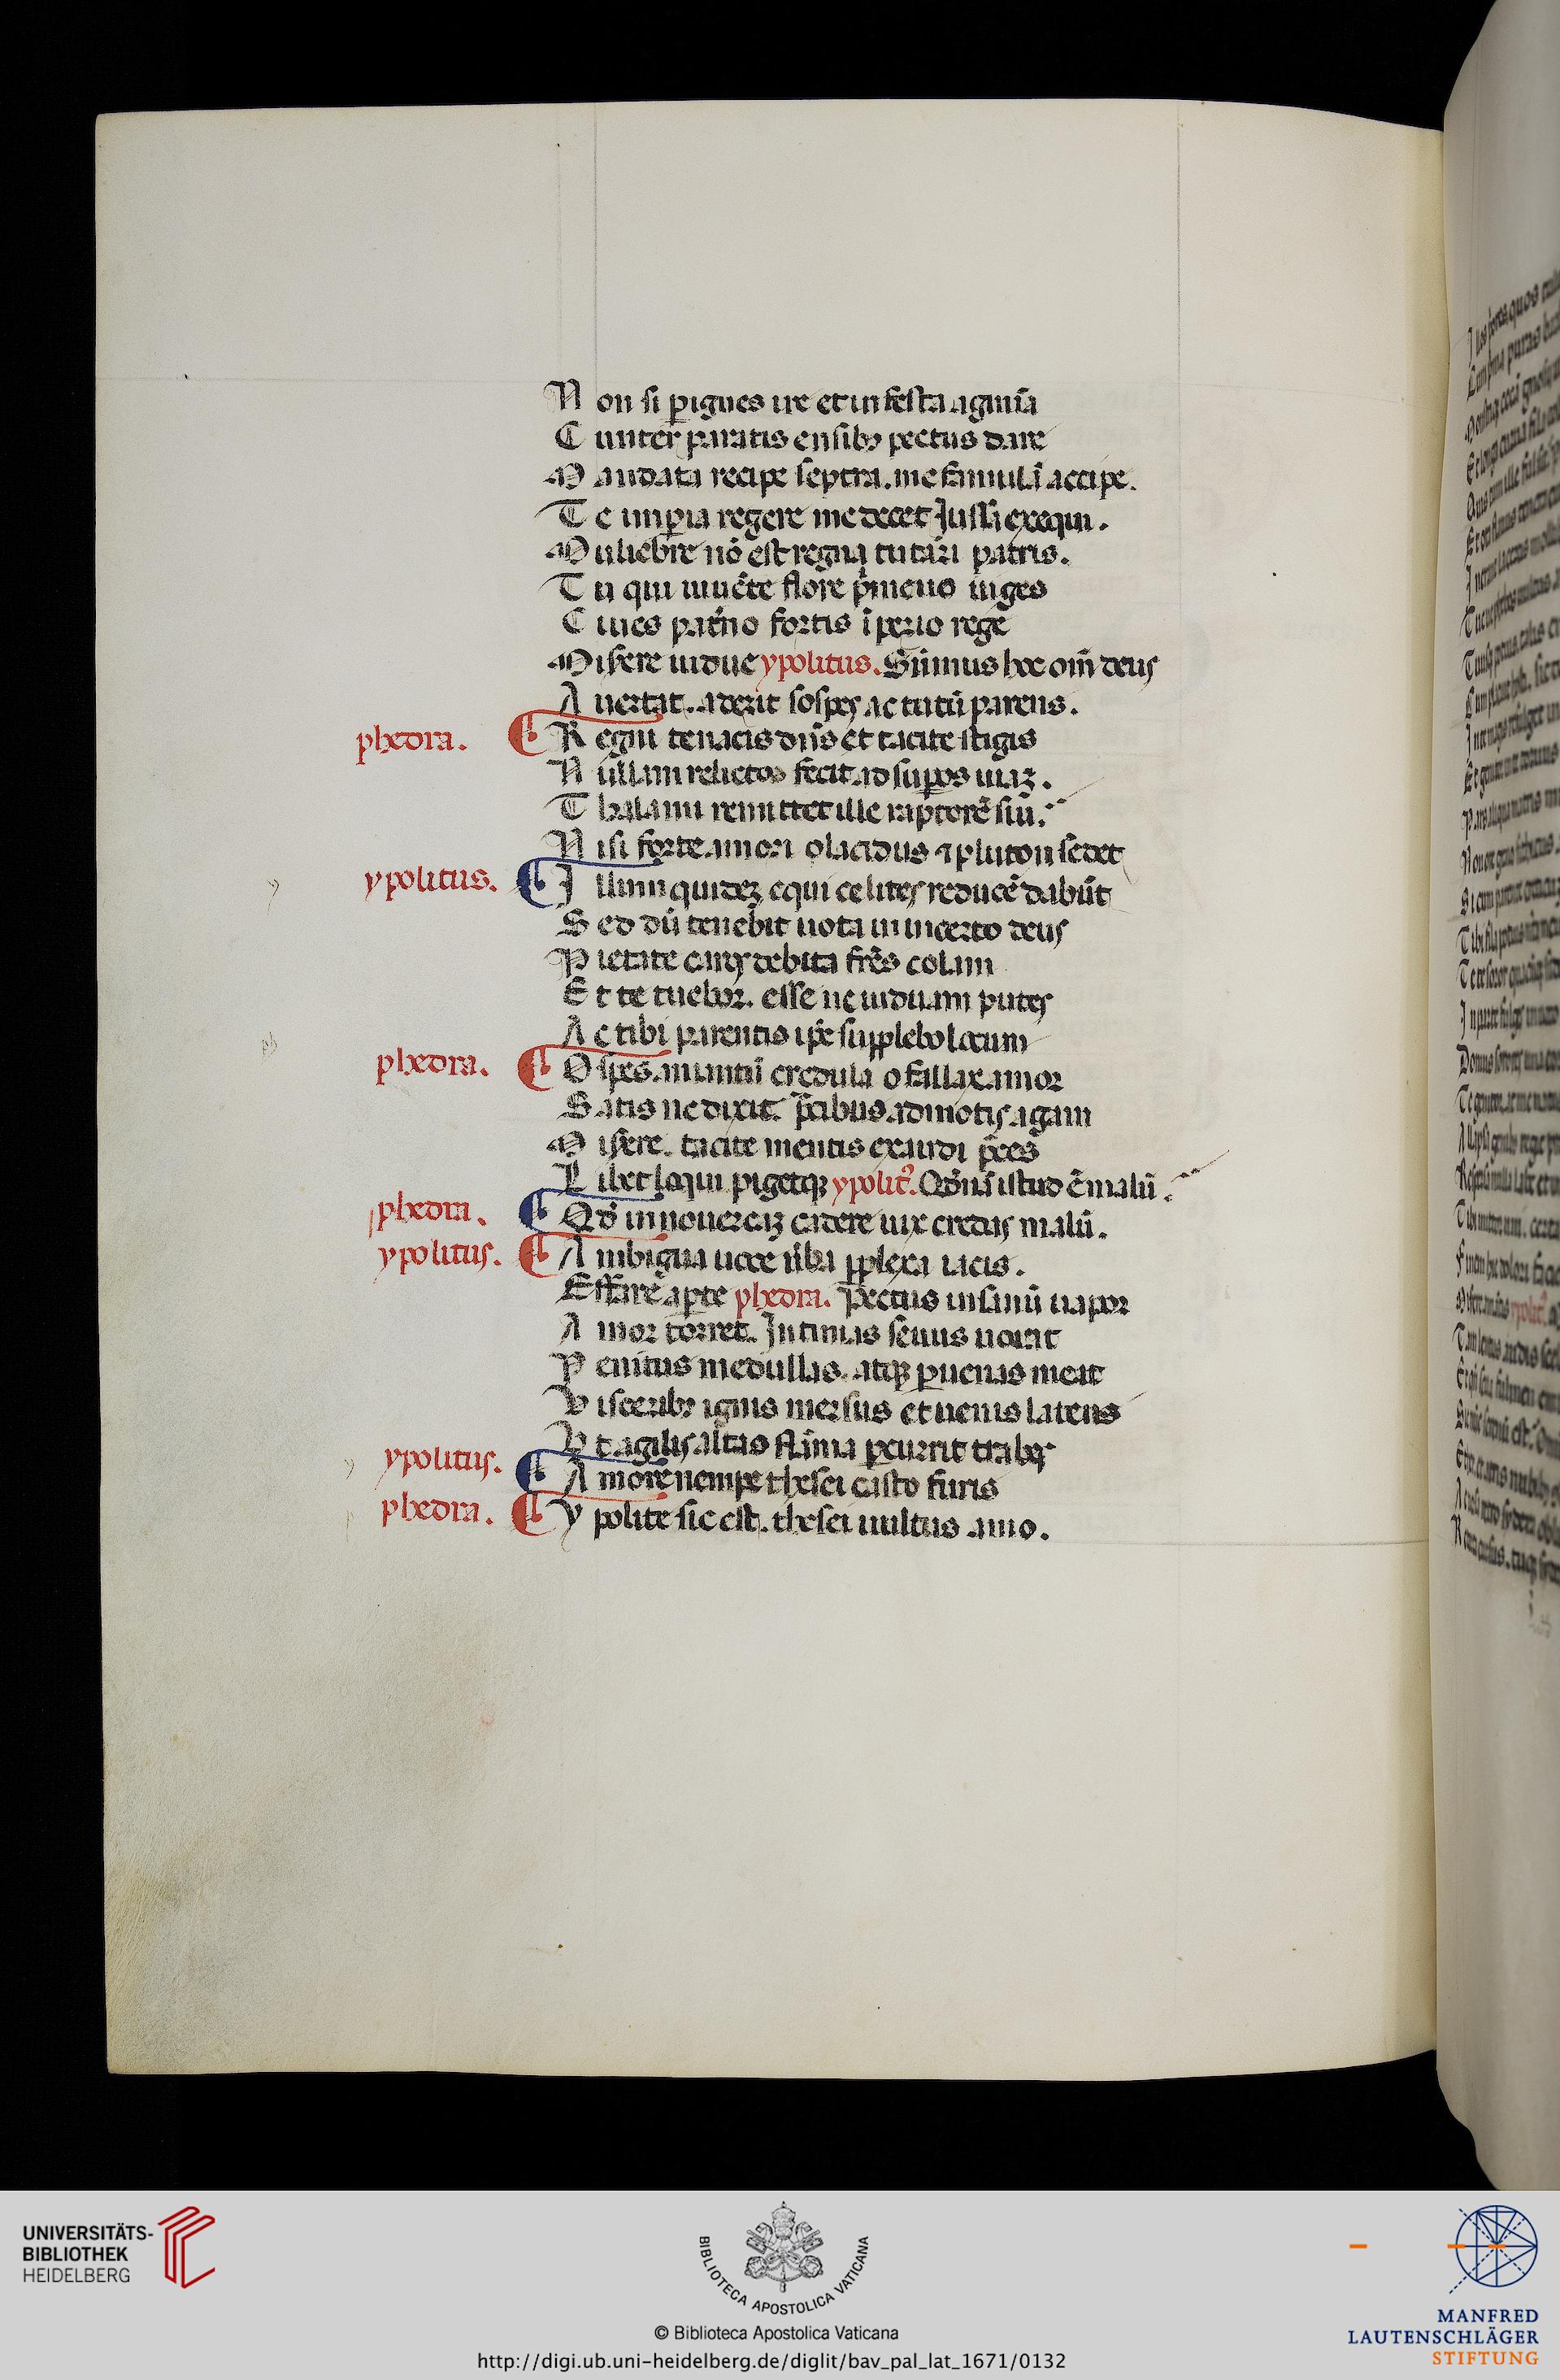 N on si p̲ ignes ire et infesta agmīa
C unter paratis ensibꝫ pectus dare
M andata recipe septra. me famulā accipe.
T e imp̲ia regere me decet Jussa exequi.
M uliebre nō est regna tutari patris.
T u qui iuuēte flore p̲meuo uiges
C iues pat̄no fortis īperio rege
M isere uidue ypolitus. Sūmus hoc om̄ deus
A uertat. aderit sospes actutū parens.
phedra. R egni tenacis dn̄s et tacite stigis
N ullam relictos fecit ad sup̲os uiaꝫ.
T halami remittet ille raptorē suū.
N isi forte amori olacidus ⁊ pluton sedet
ypolitus. I llum quideꝫ equi celites reducē dabūt
S ed dū tenebit uota in incerto deus
P ietate caros debita fr̄es colam
E t te tuebor. esse ne uiduam putes
A c tibi parentis ip̄e supplebo locum
phedra. O spes amantū credula o fallax amor
S atis ne dixit. p̄cibus admotis agam
M isere. tacite mentis exaudi p̄ces
L ibet loqui pigetqꝫ ypolitꝰ. Qd̄nā istud ē malū.
phedra. Qd̄ in nouercaꝫ cadere uix credas malū.
ypolitus. A mbigua uoce ūba p̲plexa iacis.
Effare ap̲te phedra. Pectus insanū uapor
A mor torret. Intimas seuus uorat
P enitus medullas. atqꝫ p̲ uenas meat
V isceribꝫ ignis mersus et uenis latens
V t agilis altas flāma p̲currit trabes
ypolitus. A more nempe thesei casto furis
phedra. Y polite sic est. thesei uultus amo.
UNIVERSITÄTS-
BIBLIOTHEK
HEIDELBERG
BIBLIOTECA APOSTOLICA VATICANA
© Biblioteca Apostolica Vaticana
http://digi.ub.uni-heidelberg.de/diglit/bav_pal_lat_1671/0132
MANFRED
LAUTENSCHLÄGER
STIFTUNG